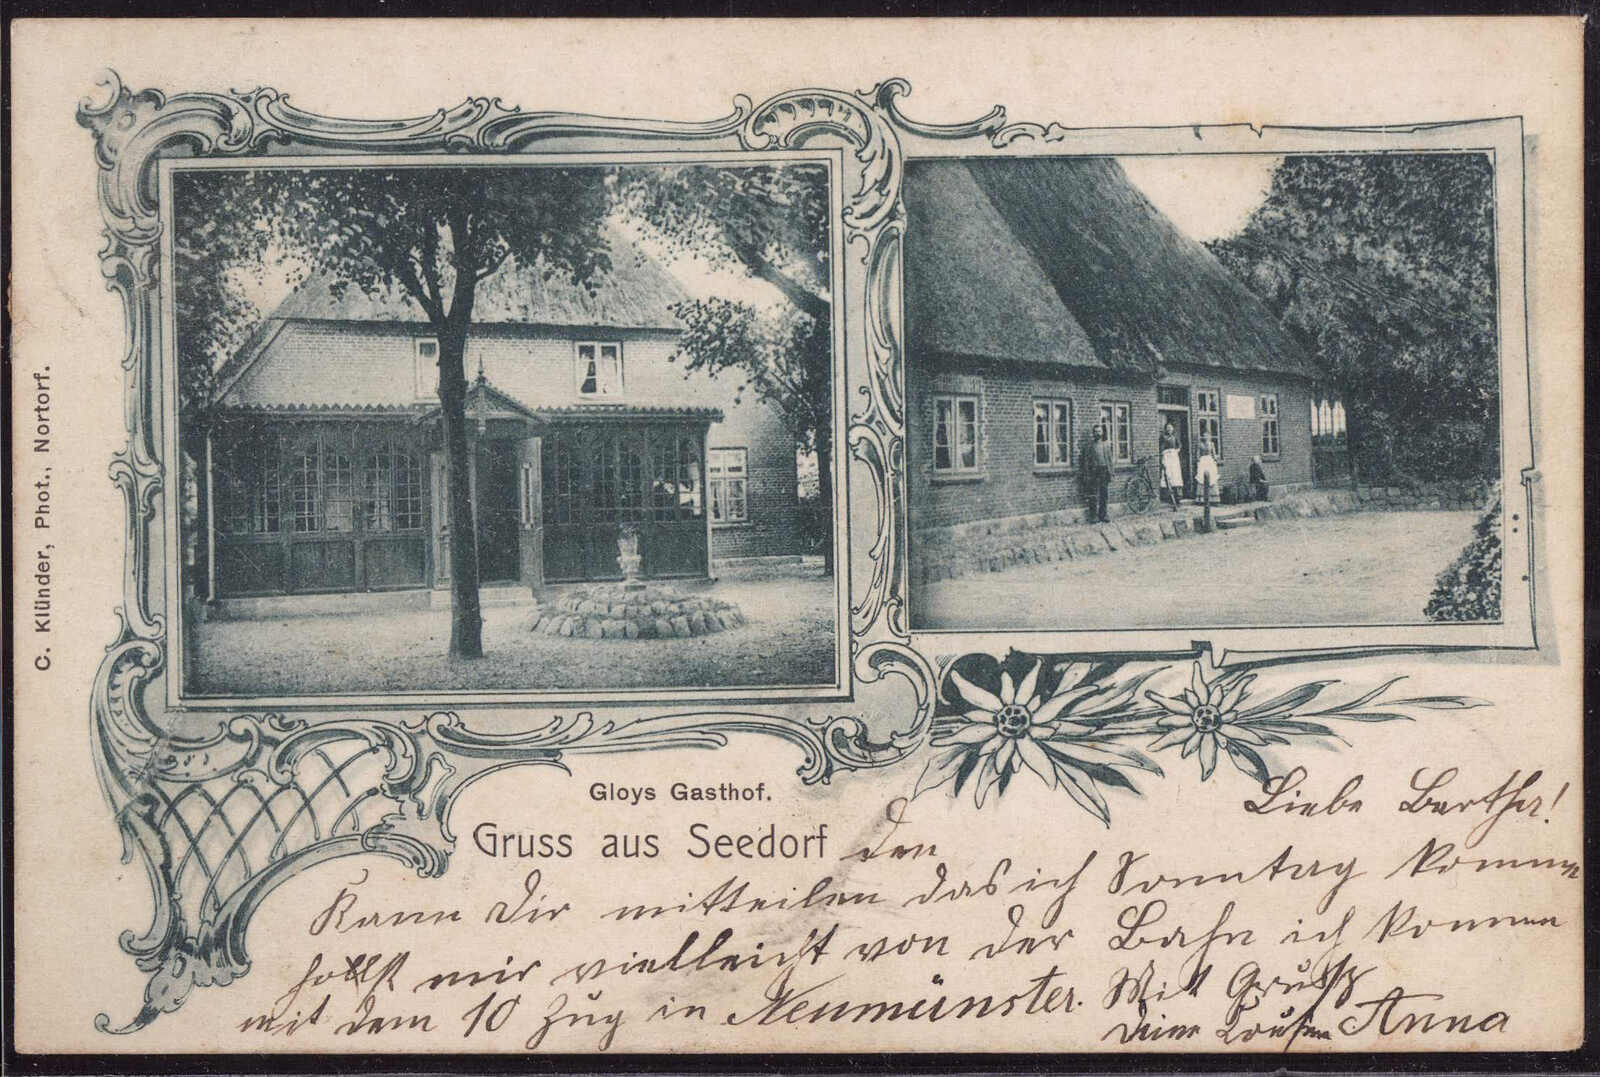 C. Klünder, Phot., Nortorf.
Gloys Gasthof.
Gruss aus Seedorf den
Liebe Bertha!
Kann Dir mitteilen das ich Sonntag komme
hollst mir vielleicht von der Bahn ich komme
mit dem 10 Zug in Neumünster.
Mit Gruß
Deine Anna